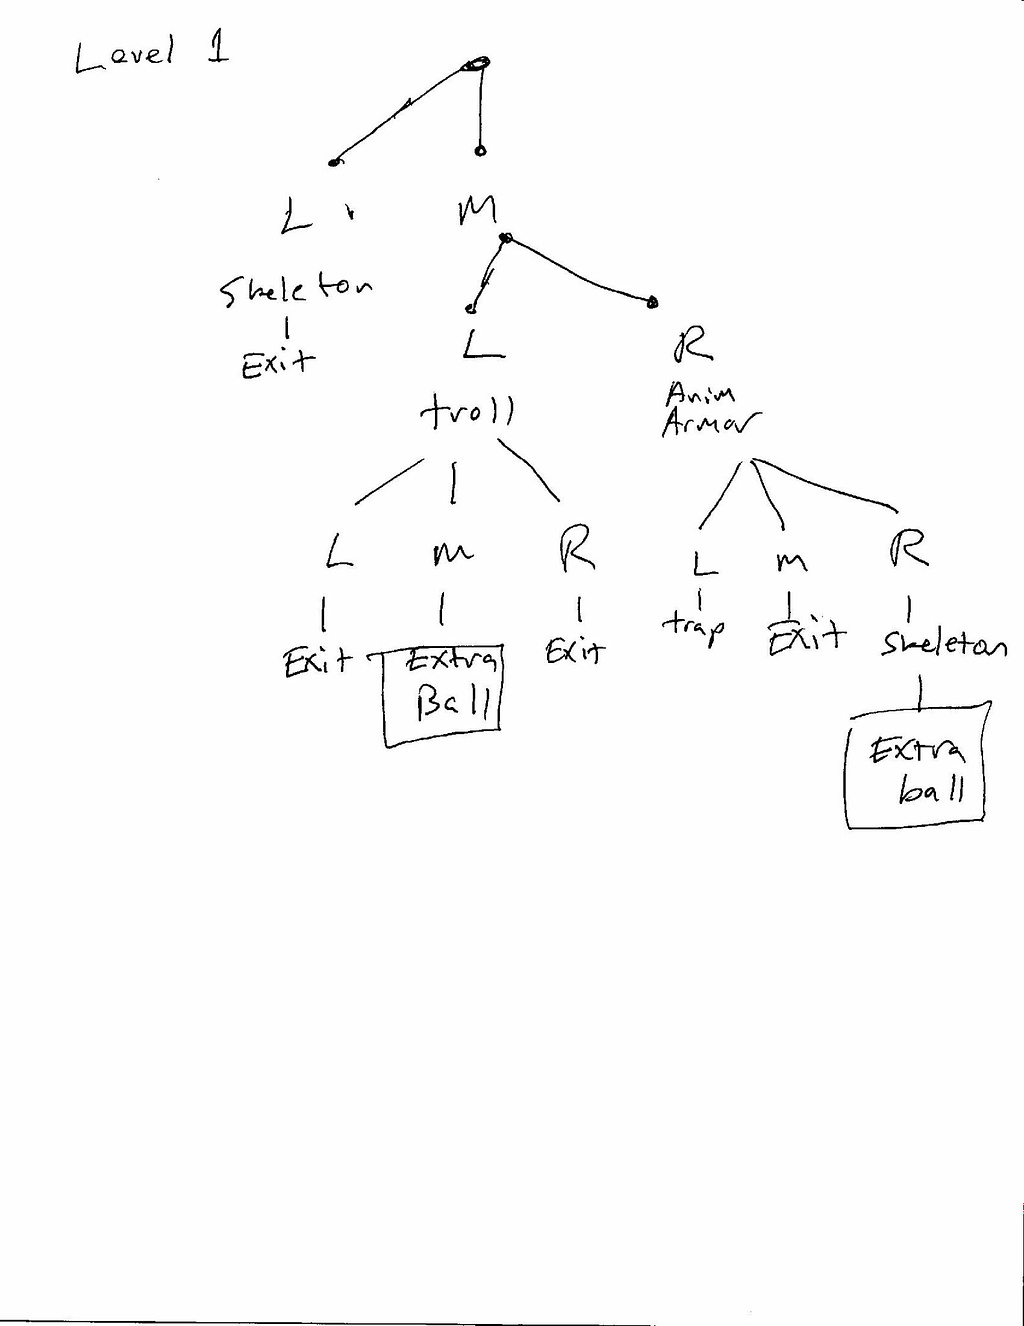 Level 1
L M
Skeleton
Exit
L R
troll
Anim
Armor
L M R
L M R
Exit Extra Exit
Ball
trap Exit Skeleton
Extra
ball